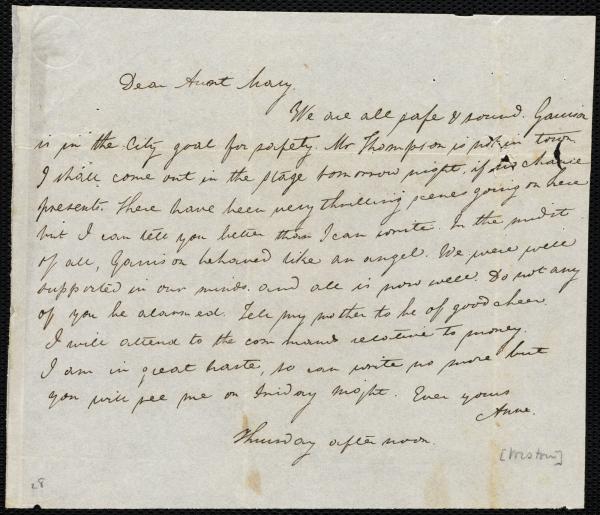 Dear Aunt Mary.
We are all safe & sound. Garrison
is in the City goal for safety. Mr Thompson is not in town
I shall come out in the stage tomorrow night, if no chance
presents. There have been very thrilling scenes going on here
but I can tell you better than I can write. In the midst
of all, Garrison behaved like an angel. We were well
supported in our minds. and all is now well. Do not any
of you be alarmed. Tell my mother to be of good cheer
I will attend to the commands relative to money.
I am in great haste, so can write no more but
you will see me on Friday night. Ever yours
Anne.
Thursday afternoon.
[Weston]
28